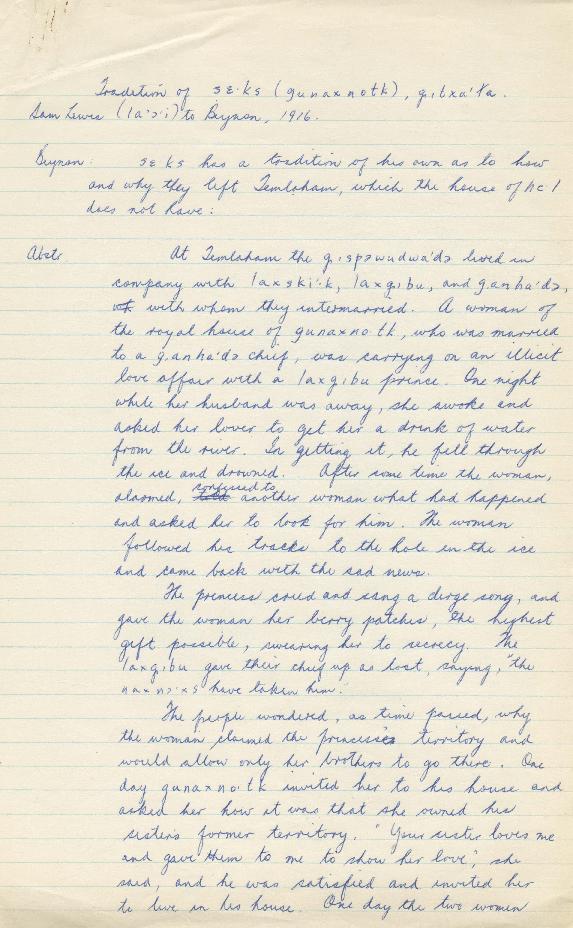 Tradition of sɛ·ks (gunaxnotk), gιtxa'ɫa.
Sam Lewis (la'ɔ'i) to Beynon, 1916.
Beynon: sɛ ks has a tradition of his own as to how
and why they left Temlaham, which the house of hɛ l
does not have:
Abstr At Temlaham the gιspəwudwa'də lived in
company with laxski·'k, laxgιbu, and ganha'də,
with whom they intermarried. A woman of
the royal house of gunaxno·tk, who was married
to a ganha'də chief, was carrying on an illicit
love affair with a laxgιbu prince. One night
while her husband was away, she awoke and
asked her lover to get her a drink of water
from the river. In getting it, he fell through
the ice and drowned. After some time the woman,
alarmed, confessed to another woman what had happened
and asked her to look for him. The woman
followed his tracks to the hole in the ice
and came back with the sad news.
The princess cried and sang a dirge song, and
gave the woman her berry patches, the highest
gift possible, swearing her to secrecy. The
laxgιbu gave their chief up as lost, saying, "the
naxnɔ·'xs have taken him."
The people wondered, as time passed, why
the woman claimed the princess's territory and
would allow only her brothers to go there. One
day gunaxno·tk invited her to his house and
asked her how it was that she owned his
sister's former territory. "Your sister loves me
and gave them to me to show her love", she
said, and he was satisfied and invited her
to live in his house. One day the two women